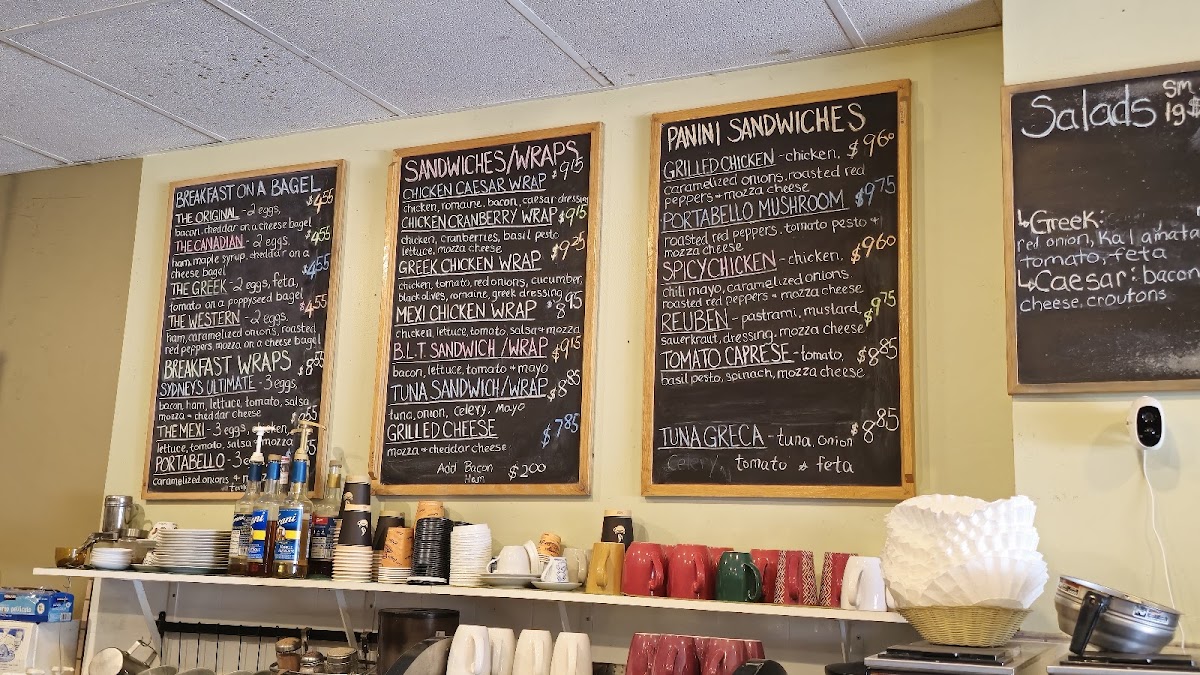 BREAKFAST ON A BAGEL
THE ORIGINAL - 2 eggs, $4.55
bacon, cheddar on a cheese bagel
THE CANADIAN - 2 eggs, $4.55
ham, maple syrup, cheddar on a
cheese bagel $4.55
THE GREEK - 2 eggs, feta,
tomato on a poppyseed bagel
THE WESTERN - 2 eggs, $4.55
ham, caramelized onions, roasted
red peppers, mozza on a cheese bagel
BREAKFAST WRAPS
SYDNEY'S ULTIMATE - 3 eggs, $8.55
bacon, ham, lettuce, tomato, salsa
mozza + cheddar cheese
THE MEXI - 3 eggs, chicken,
lettuce, tomato, salsa
PORTABELLO - 3
caramelized onions +
SANDWICHES/WRAPS
CHICKEN CAESAR WRAP $9.15
chicken, romaine, bacon, caesar dressing
CHICKEN CRANBERRY WRAP $9.15
chicken, cranberries, basil pesto
lettuce, mozza cheese
GREEK CHICKEN WRAP $9.25
chicken, tomato, red onions, cucumber
black olives, romaine, greek dressing
MEXI CHICKEN WRAP $8.95
chicken, lettuce, tomato, salsa + mozza
B.L.T. SANDWICH /WRAP $9.15
bacon, lettuce, tomato + mayo
TUNA SANDWICH/WRAP $8.85
tuna, onion, celery, Mayo
GRILLED CHEESE $7.85
mozza + cheddar cheese
Add Bacon $2.00
Ham
PANINI SANDWICHES
GRILLED CHICKEN - chicken, $9.60
caramelized onions, roasted red
peppers + mozza cheese
PORTABELLO MUSHROOM $9.75
roasted red peppers, tomato pesto +
mozza cheese
SPICY CHICKEN - chicken, $9.60
chili mayo, caramelized onions
roasted red peppers + mozza cheese
REUBEN - pastrami, mustard, $9.75
sauerkraut, dressing, mozza cheese
TOMATO CAPRESE - tomato, $8.85
basil pesto, spinach, mozza cheese
TUNA GRECA - tuna, onion $8.85
Celery, tomato + feta
Salads sm $
lg $
↳Greek:
red onion, Kalamata
tomato, feta
↳Caesar: bacon
cheese, croutons